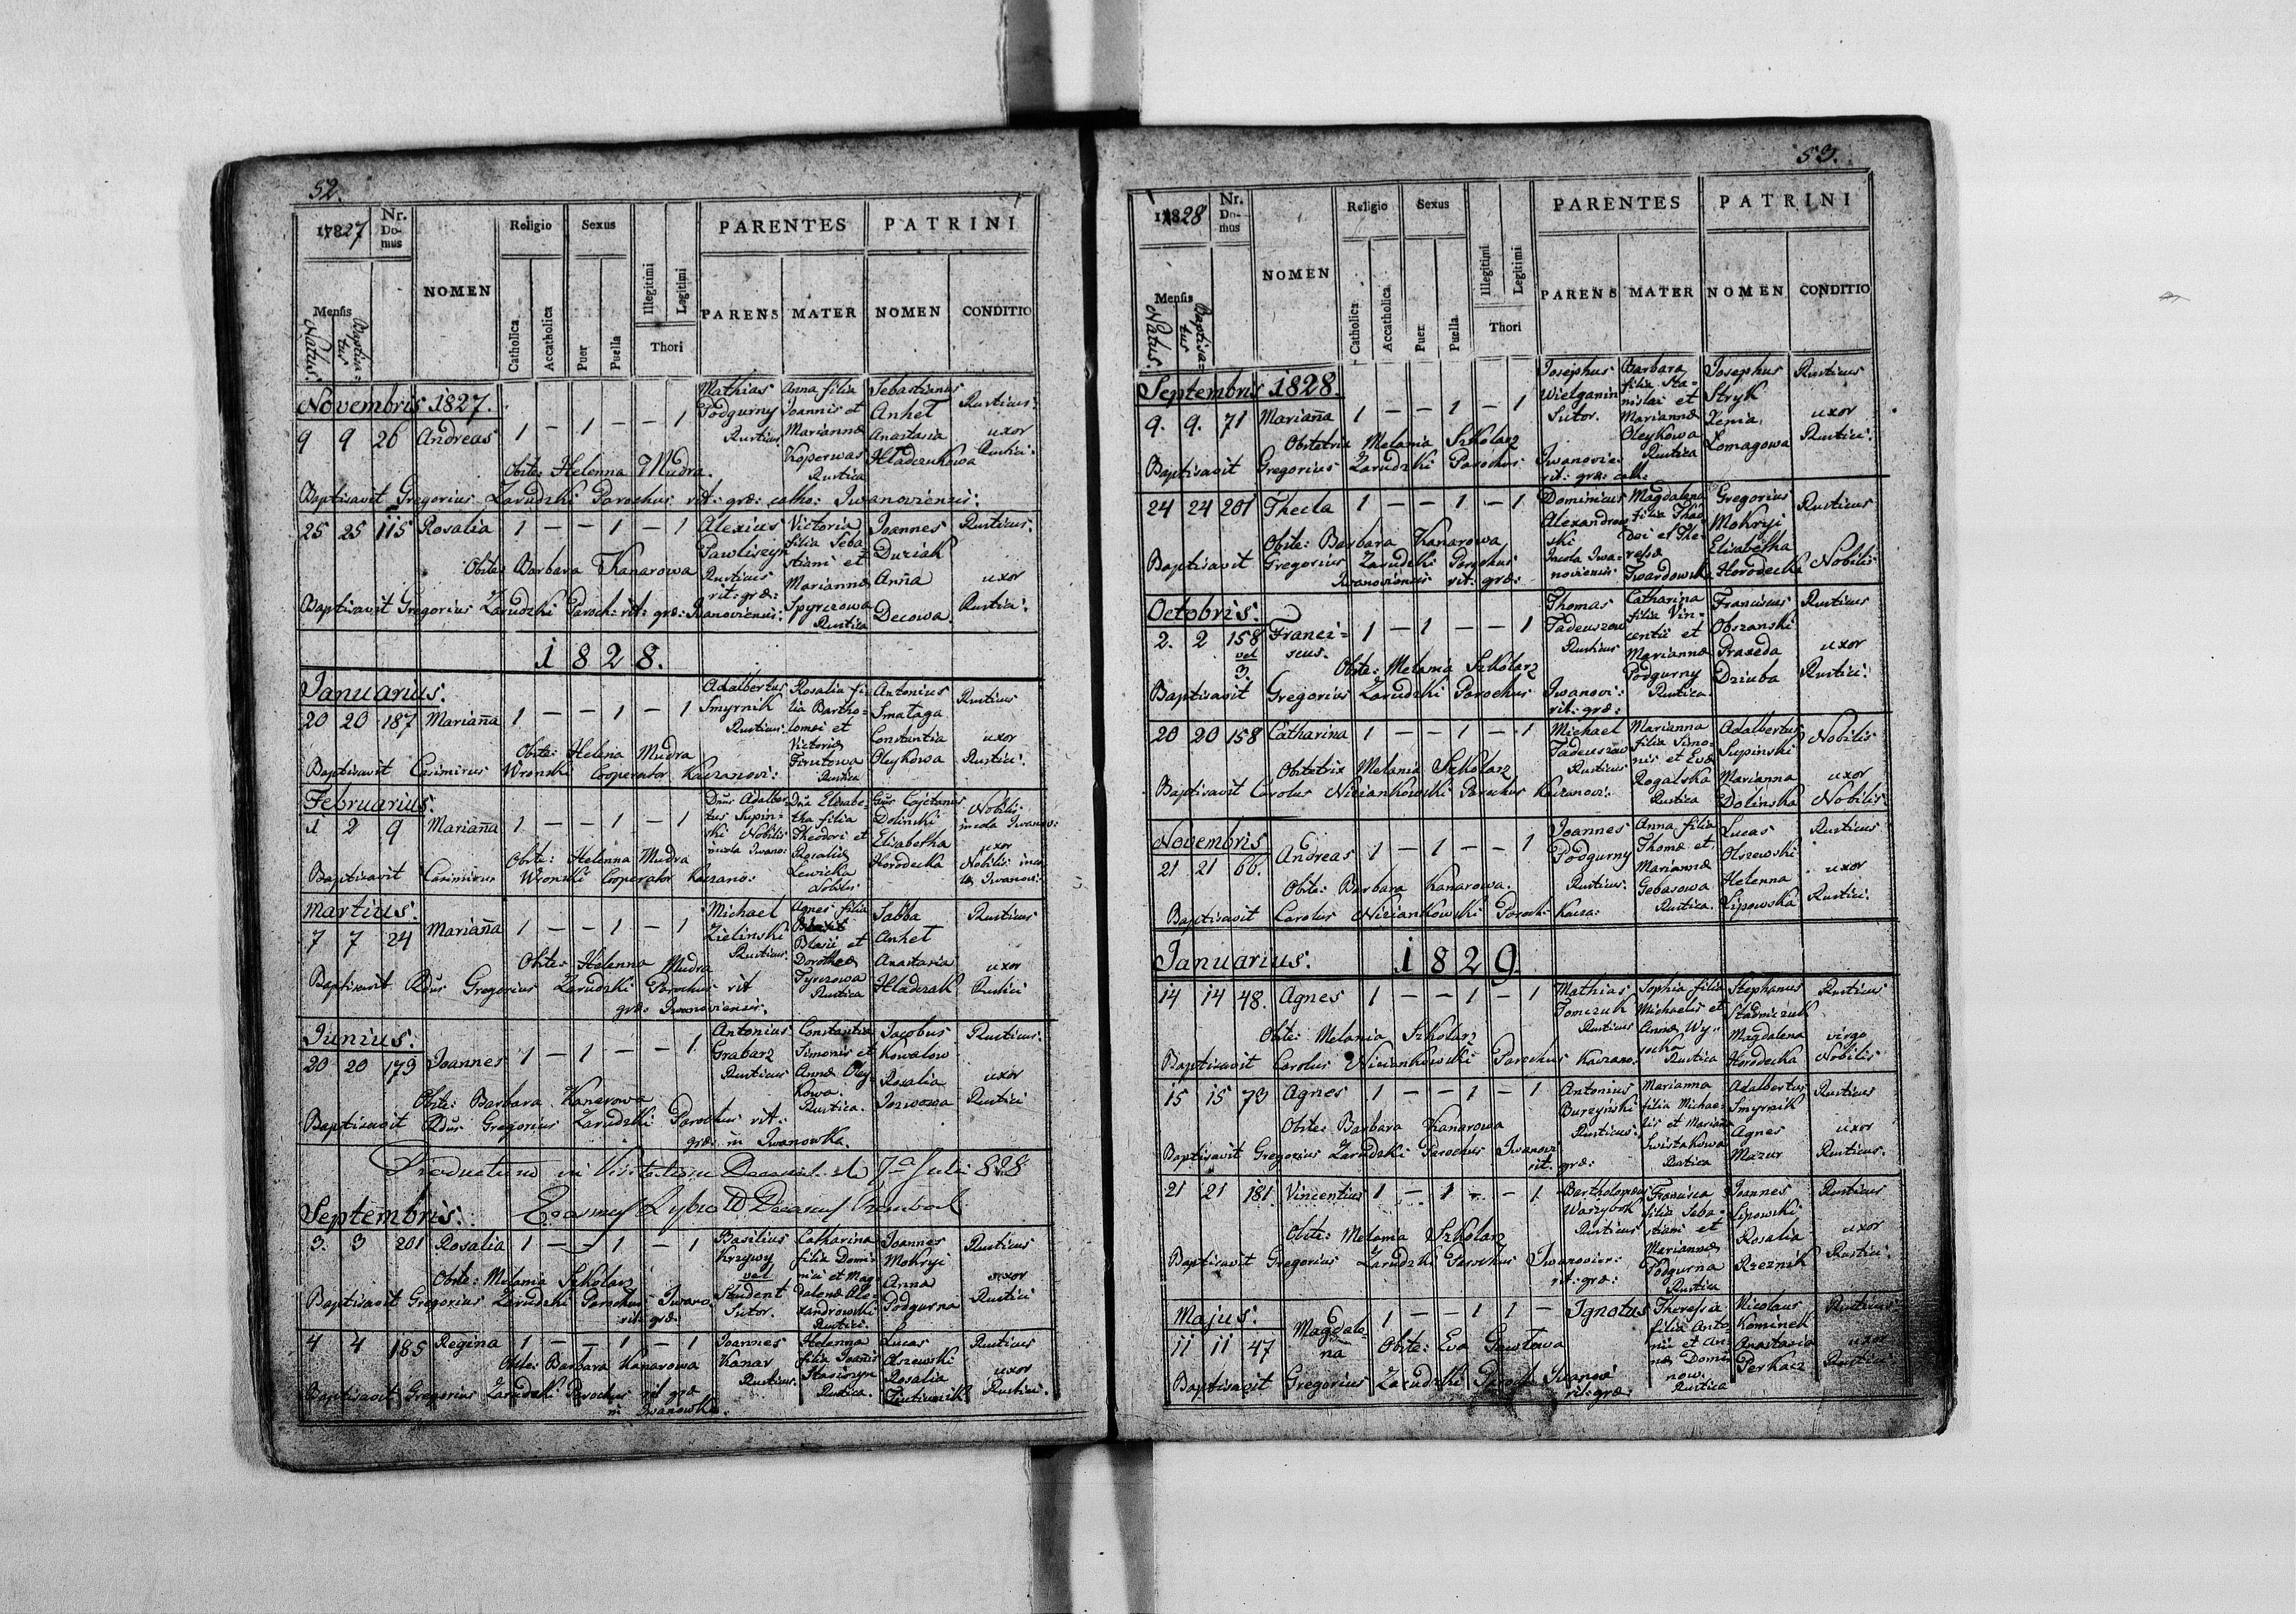 52.
1827 Nr. Domus NOMEN Religio Sexus PARENTES PATRINI
Mensis Natus. Baptisatus Catholica Accatholica Puer Puella Illegitimi Legitimi Thori PARENS MATER NOMEN CONDITIO
Novembris 1827.
9 9 26 Andreas 1 – 1 – – 1
Mathias Podgurny Rusticus
Anna filia Joannis et Mariannæ Koperwas Rustica
Sebastianus Anhet Rusticus.
Anastasia Hladczukowa uxor Rustici.
Obste: Helenna Mudra.
Baptisavit Gregorius Zarudzki Parochus rit: græ: catho: Iwanoviensis:
25 25 115 Rosalia 1 – – 1 – 1
Alexius Pawliszyn Rusticus rit: græ:
Victoria filia Sebastiani et Mariannæ Spyrczowa Rustica
Joannes Duziak Rusticus.
Anna Decowa uxor Rustici.
Obste: Barbara Kanarowa
Baptisavit Gregorius Zarudzki Paroch: rit: græ: Iwanoviensis:
1828.
Januarius.
20 20 187 Marianna 1 – – 1 – 1
Adalbertus Smyrnik Rusticus
Rosalia filia Bartholomei et Victoriæ Rustica
Antonius Smataga Rusticus
Constantia Oleykowa uxor Rustici.
Obste: Helena Mudra
Baptisavit Casimirus Wronski Cooperator Kaczanovi:
Februarius.
1 2 9 Marianna 1 – – 1 – 1
Dnus Adalbertus Supinski Nobilis incola Iwano:
Dna Elisabetha filia Theodori et Rosaliæ Lewicka Nobilis
Cajetanus Dolinski Nobilis incola Iwanov:
Elisabetha Horodecka uxor Nobilis Iwanov:
Obste: Helenna Mudra
Baptisavit Casimirus Wronski Cooperator Kaczano:
Martius.
7 7 24 Marianna 1 – – 1 – 1
Michael Zielinski Rusticus
Agnes filia Blasii et Dorotheæ Tyrczowa Rustica
Sabba Anhet Rusticus
Anastasia Hladczak uxor Rustici
Obste: Helenna Mudra
Baptisavit Rdus Gregorius Zarudzki Parochus rit græ: Iwanoviensis.
Junius.
20 20 179 Joannes 1 – 1 – – 1
Antonius Grabarz Rusticus
Constantia Simonis et Annæ Oleykowa. Rustica.
Jacobus Kowalow Rusticus.
Rosalia uxor Rustici
Obste: Barbara Kanarowa
Baptisavit Rdus Gregorius Zarudzki Parochus rit: græ: in Iwanowka.
Productum in Visitatione Decanali d 7a Juli 828
Septembris.
3. 3 201 Rosalia 1 – – 1 – 1
Basilius Krzywy vel Student Sutor.
Catharina filia Dominici et Magdalenæ Alexandrowski Rustici.
Joannes Mokryi Rusticus
Anna Podgurna uxor Rustici
Obste: Melania Szkolarz
Baptisavit Gregorius Zarudzki Parochus Iwano: rit: græ:
4 4 185 Regina 1 – – 1 – 1
Joannes Kanar Rusticus.
Helenna filia Joanis Rustica.
Lucas Olszewski Rusticus
Rosalia uxor Rustici.
Obste: Barbara Kanarowa
Baptisavit Gregorius Zarudzki Parochus rit græ in Iwanowka.
53.
1828 Nr. Domus NOMEN Religio Sexus PARENTES PATRINI
Mensis Natus. Baptisatus Catholica Accatholica Puer Puella Illegitimi Legitimi Thori PARENS MATER NOMEN CONDITIO
Septembris 1828.
9. 9. 71 Marianna 1 – – 1 – 1
Josephus Sutor.
Barbara filia Stanislai et Mariannæ Oleykowa Rustica
Josephus Stryk Rusticus
Xenia Lomagowa uxor Rustici.
Obstetrix Melania Szkolarz
Baptisavit Gregorius Zarudzki Parochus Iwanovie: rit: græ: cath:
24 24 201 Thecla 1 – – 1 – 1
Dominicus Alexandrowski Incola Iwanoviensis
Magdalena filia Thadei et Theresæ Twardowska
Gregorius Mokryi Rusticus
Elisabetha Horodecka Nobilis
Obste: Barbara Kanarowa
Baptisavit Gregorius Zarudzki Parochus Iwanoviensis rit: græ:
Octobris.
2. 2 158 vel 3. Franciscus. 1 – 1 – – 1
Thomas Tadeuszow Rusticus
Catharina filia Vincentii et Mariannæ Podgurny Rustica.
Franciscus Obszanski Rusticus
Praxeda Dziuba uxor Rustici.
Obste: Melania Szkolarz
Baptisavit Gregorius Zarudzki Parochus Iwanovi: rit: græ:
20 20 158 Catharina 1 – – 1 – 1
Michael Tadeuszow Rusticus
Marianna filia Simonis et Evæ Rogalska Rustica
Adalbertus Supinski Nobilis
Marianna Dolinska uxor Nobilis
Obstetrix Melania Szkolarz
Baptisavit Carolus Niziankowski Parochus Kaczanovi:
Novembris
21 21 66. Andreas 1 – 1 – – 1
Joannes Podgurny Rusticus.
Anna filia Thomæ et Mariannæ Gebasowa Rustica.
Lucas Olszewski Rusticus
Helenna Lipowska uxor Rustici.
Obste: Barbara Kanarowa.
Baptisavit Carolus Niziankowski Paroch: Kacza:
Januarius. 1829
14 14 48. Agnes 1 – – 1 – 1
Mathias Tomczuk Rusticus
Sophia filia Michaelis et Annæ Wysocka Rustica
Stephanus Stadniczuk Rusticus
Magdalena Horodecka virgo Nobilis
Obste: Melania Szkolarz
Baptisavit Carolus Niziankowski Parochus Kaczano:
15 15 73 Agnes 1 – – 1 – 1
Antonius Burzyński Rusticus.
Marianna filia Michaelis et Mariannæ Swistakowa Rustica
Adalbertus Smyrnik Rusticus
Agnes Mazur uxor Rusticus.
Obste: Barbara Kanarowa
Baptisavit Gregorius Zarudzki Parochus Iwanovi rit: græ:
21 21 181 Vincentius 1 – 1 – – 1
Bartholomeus Waszybok Rusticus
Francisca filia Sebastiani et Mariannæ Podgurna Rustica
Joannes Lipowski Rusticus
Rosalia Rzeznik uxor Rustici.
Obste: Melania Szkolarz
Baptisavit Gregorius Zarudzki Parochus Iwanovien: rit: græ:
Majus.
11 11 47 Magdalena 1 – – 1 1 –
Ignotus
Theressia filia Antonii et Annæ Rustica
Nicolaus Kominek Rusticus
Anastasia Perkacz uxor Rustici
Obste: Eva
Baptisavit Gregorius Zarudzki Paroch Iwanovi rit: græ: